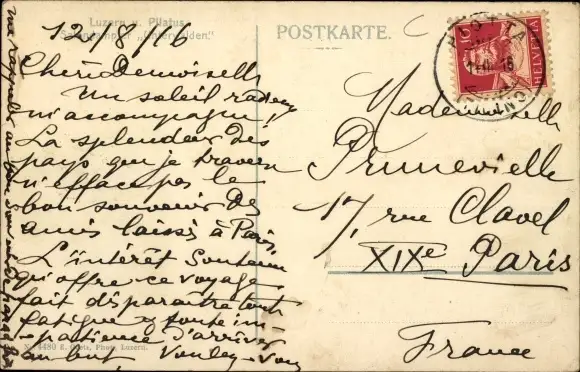 Luzern u. Pilatus
Salondampfer „Unterwalden."
POSTKARTE.
12/8/16
Chère Demoiselle
Un soleil radieux
m'accompagne!
La splendeur des
pays que je traverse
n'efface pas le
bon souvenir des
amis laissés à Paris.
L'intérêt soutenu
qu'offre ce voyage
fait disparaître toute
fatigue & toute im-
patience d'arriver
au but. Voulez-vous
me rappeler au bon souvenir
Mademoiselle
Prunevielle
17, rue Clavel
XIXe Paris
France
PIOTTA
HELVETIA
10
N. 4480 E. Goetz, Phot. Luzern.